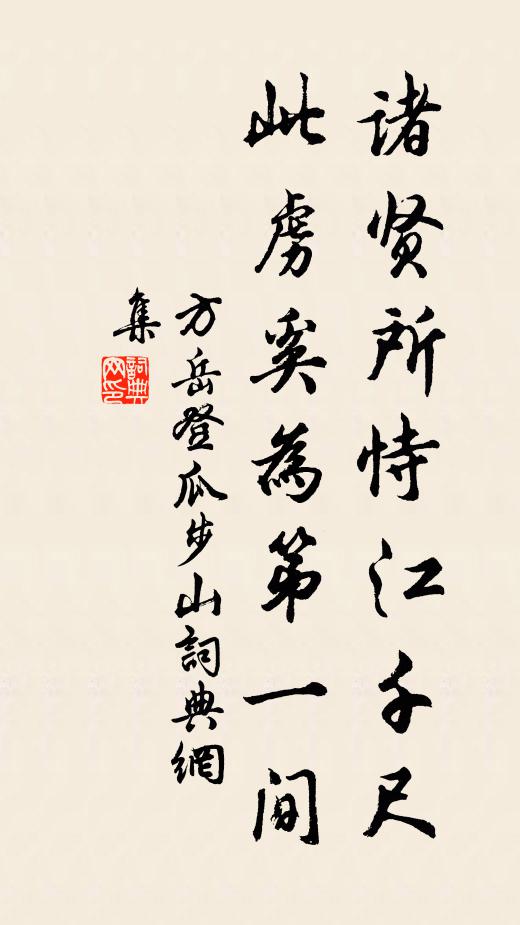 诸贤所恃江千尺
此虏奚为第一间
方岳登瓜步山詞典網
集
詞典
网印